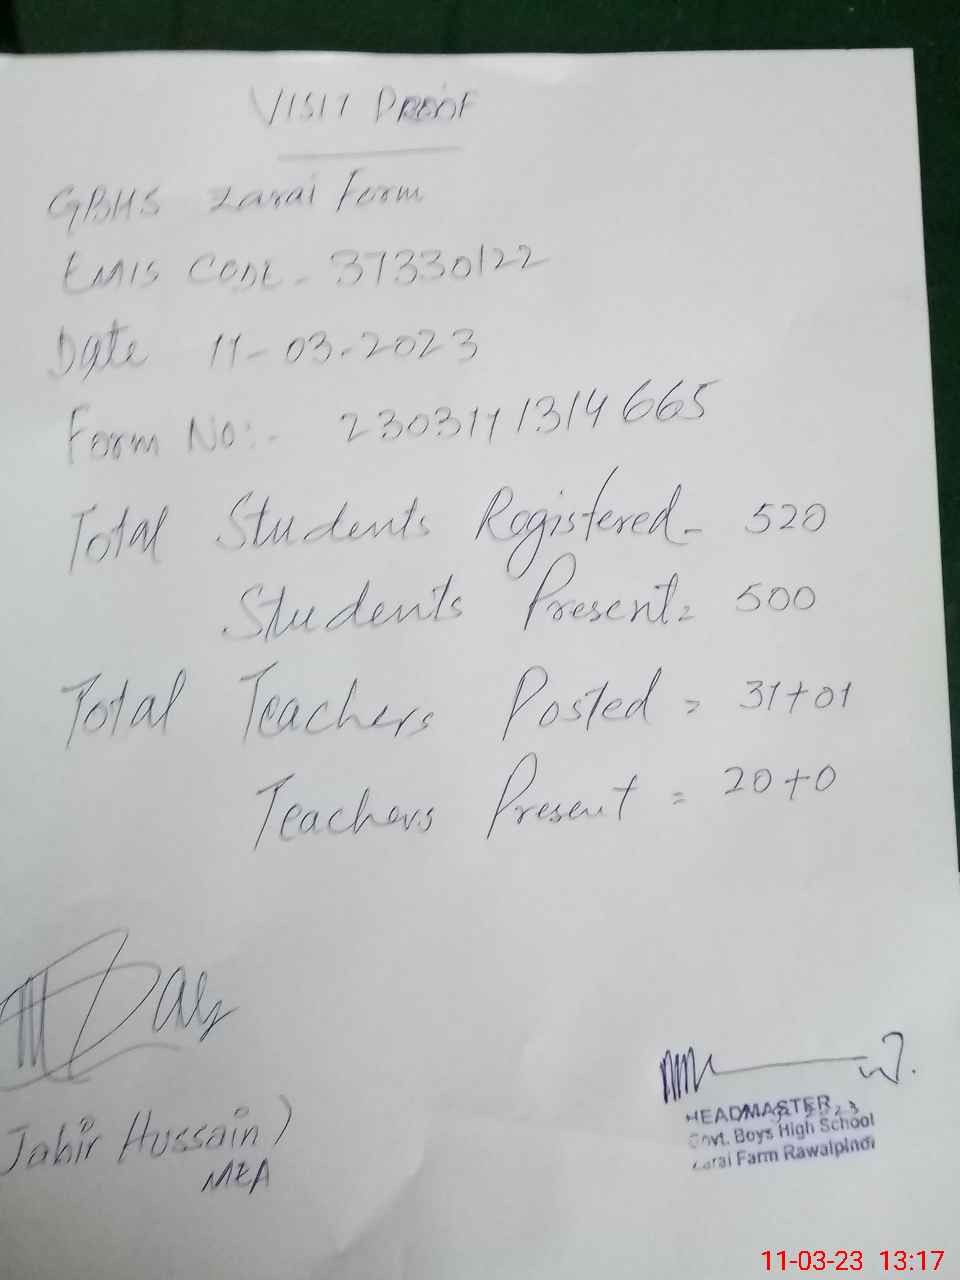 VISIT PROOF
GBHS Zarai Farm
EMIS CODE - 37330122
Date 11-03-2023
Form No:- 2303111314665
Total Students Registered - 520
Students Present = 500
Total Teachers Posted = 31+01
Teachers Present = 20+0
Jabir Hussain)
MEA
HEADMASTER
Govt. Boys High School
Zarai Farm Rawalpindi
11-03-23 13:17